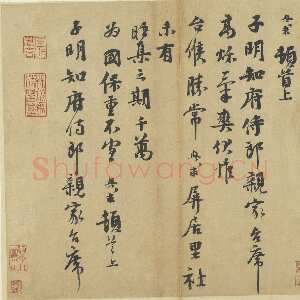 頓首上
子明知府侍郎親家台席
高秋氣爽伏惟
台候勝常 屏居里社
未有
晤集之期千萬
為國保重不宣 頓首上
子明知府侍郎親家台席
Shufawang.cn